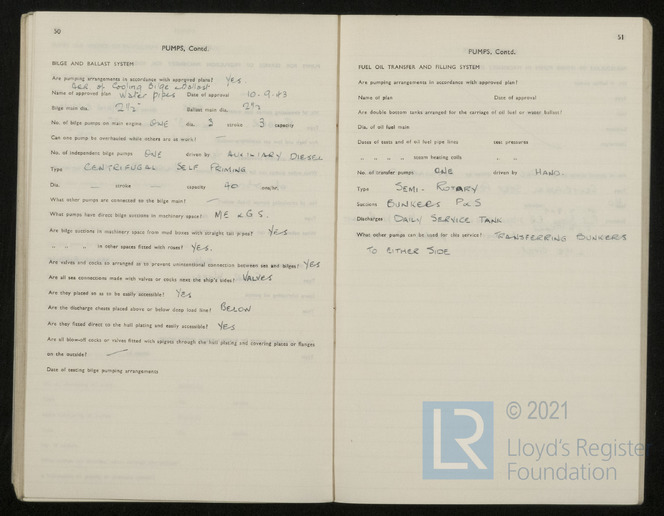 50
PUMPS, Contd.
BILGE AND BALLAST SYSTEM
Are pumping arrangements in accordance with approved plans? Yes.
Gen of Cooling Bilge & Ballast
Name of approved plan Water pipes Date of approval 10-9-83
Bilge main dia. 2½" Ballast main dia. 2½
No. of bilge pumps on main engine ONE dia. 3 stroke 3 capacity
Can one pump be overhauled while others are at work? —
No. of independent bilge pumps ONE driven by AUXILIARY DIESEL
Type CENTRIFUGAL SELF PRIMING
Dia. — stroke — capacity 40 tons/hr.
What other pumps are connected to the bilge main? —
What pumps have direct bilge suctions in machinery space? ME & G.S.
Are bilge suctions in machinery space from mud boxes with straight tail pipes? Yes
" " " in other spaces fitted with roses? Yes.
Are valves and cocks so arranged as to prevent unintentional connection between sea and bilges? Yes
Are all sea connections made with valves or cocks next the ship's sides? VALVES
Are they placed so as to be easily accessible? Yes
Are the discharge chests placed above or below deep load line? BELOW
Are they fitted direct to the hull plating and easily accessible? Yes
Are all blow-off cocks or valves fitted with spigots through the hull plating and covering plates or flanges
on the outside? —
Date of testing bilge pumping arrangements
51
PUMPS, Contd.
FUEL OIL TRANSFER AND FILLING SYSTEM
Are pumping arrangements in accordance with approved plan?
Name of plan Date of approval
Are double bottom tanks arranged for the carriage of oil fuel or water ballast?
Dia. of oil fuel main
Dates of tests and of oil fuel pipe lines test pressures
" " " " steam heating coils " "
No. of transfer pumps ONE driven by HAND.
Type SEMI-ROTARY
Suctions BUNKERS P&S
Discharges DAILY SERVICE TANK
What other pumps can be used for this service? TRANSFERRING BUNKERS
TO EITHER SIDE
LR © 2021
Lloyd's Register
Foundation